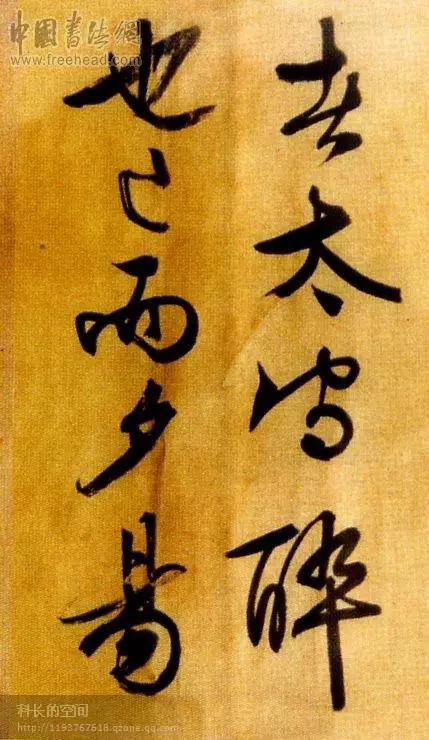 中國書法網
www.freehead.com
者太守醉
也已而夕昜
科长的空间
http://1193767618.qzone.qq.com